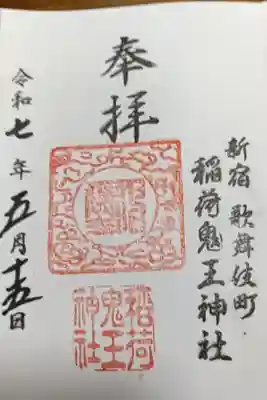 新宿 歌舞伎町
稲荷鬼王神社
奉拝
令和七年五月十五日
稲荷
鬼王
神社